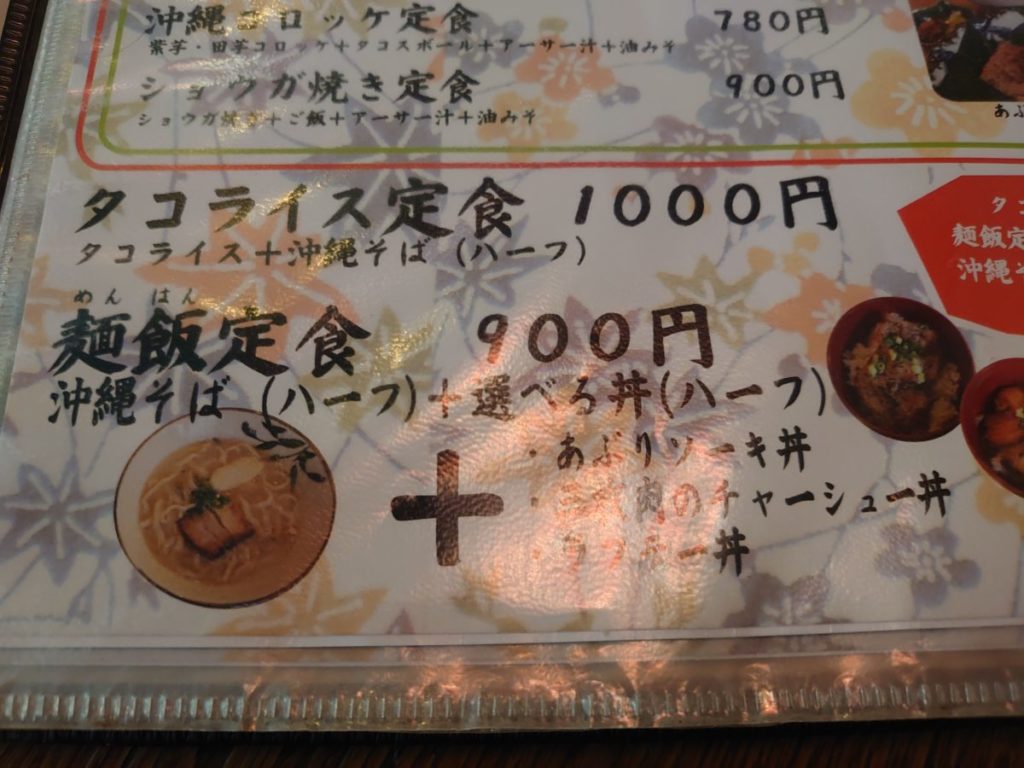 沖縄コロッケ定食 780円
紫芋・田芋コロッケ+タコスボール+アーサー汁+油みそ
ショウガ焼き定食 900円
ショウガ焼き+ご飯+アーサー汁+油みそ
あぶ
タコライス定食 1000円
タコライス+沖縄そば (ハーフ)
タコ
麺飯定
沖縄そ
めん はん
麺飯定食 900円
沖縄そば (ハーフ)+選べる丼(ハーフ)
+
・あぶりソーキ丼
・肉のチャーシュー丼
・ラフテー丼